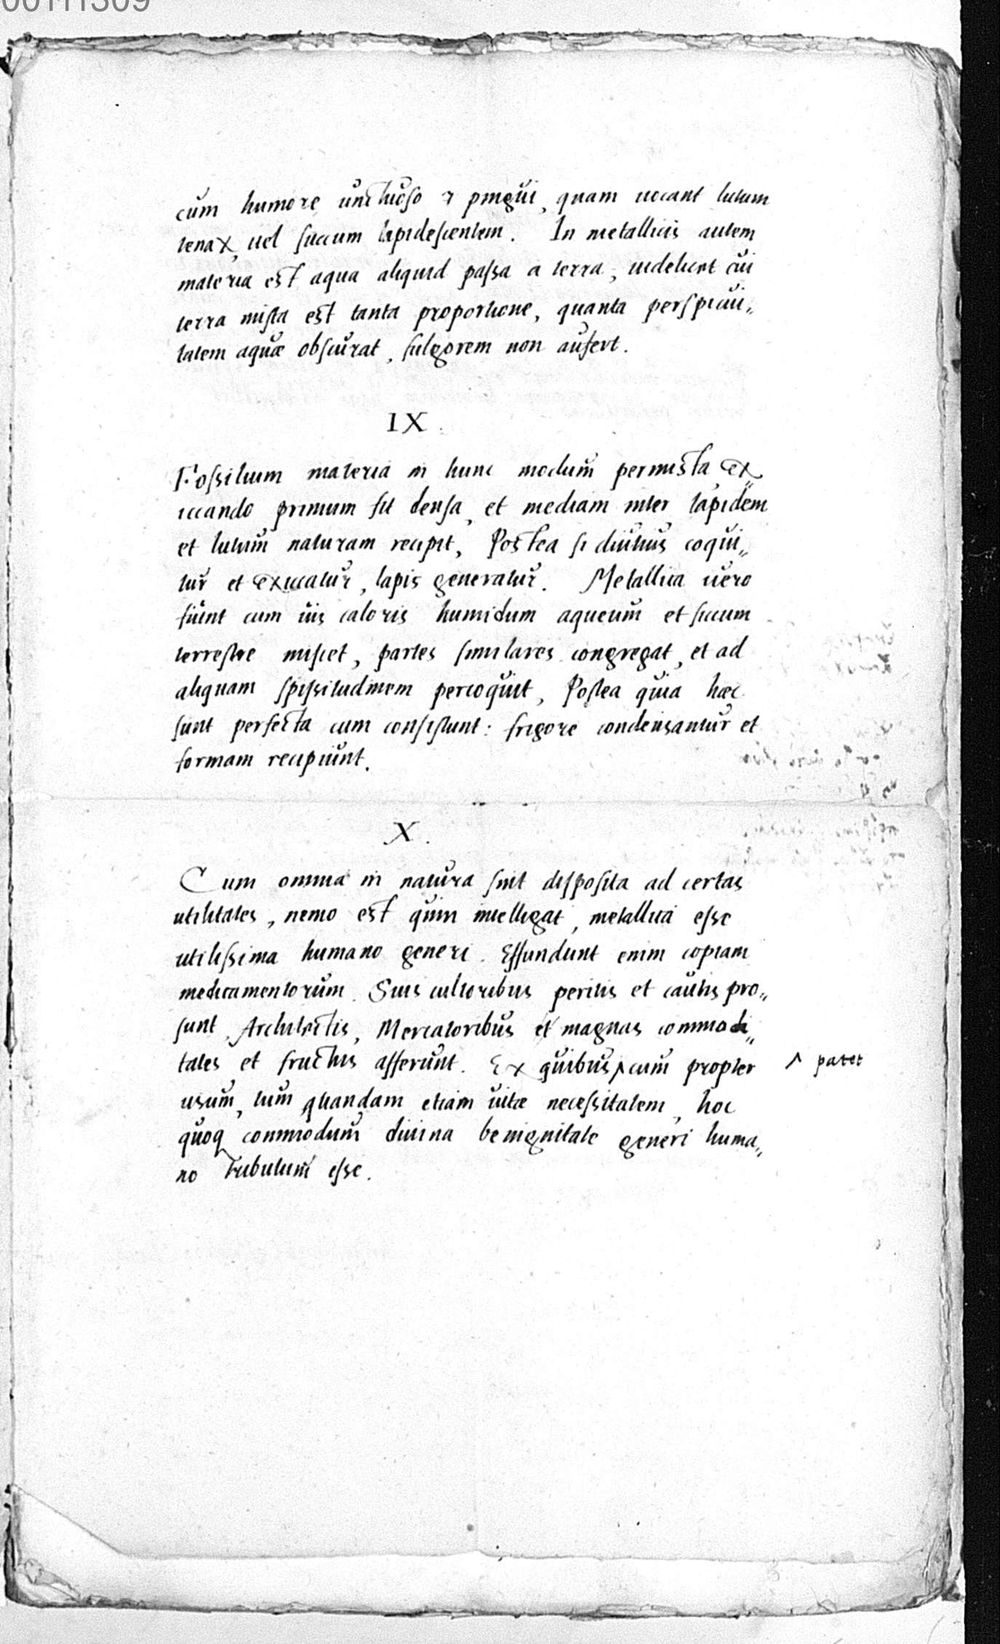 cum humore unctuoso & pingui, quam uocant lutum
tenax, uel succum lapidescentem. In metallicis autem
materia est aqua aliquid passa a terra, uidelicet cui
terra mista est tanta proportione, quanta perspicui„
tatem aquæ obscurat, fulgorem non aufert.
IX.
Fossilium materia in hunc modum permista, ex„
iccando primum fit densa, et mediam inter lapidem
et lutum naturam recipit, Postea si diutius coqui„
tur et exiccatur, lapis generatur. Metallica uero
fiunt cum uis caloris humidum aqueum et siccum
terrestre miscet, partes similares congregat, et ad
aliquam spissitudinem percoquit, Postea quia hæc
sunt perfecta cum consistunt: frigore condensantur et
formam recipiunt.
X.
Cum omnia in natura sint disposita ad certas
utilitates, nemo est quin intelligat, metallica esse
utilissima humano generi. Effundunt enim copiam
medicamentorum. Suis cultoribus peritis et cautis pro„
sunt, Architectis, Mercatoribus et magnas commodi„
tates et fructus afferunt. Ex quibus ^ cum propter ^ patet
usum, tum quandam etiam uitæ necessitatem, hoc
quoq commodum diuina benignitate generi huma„
no tributum esse.